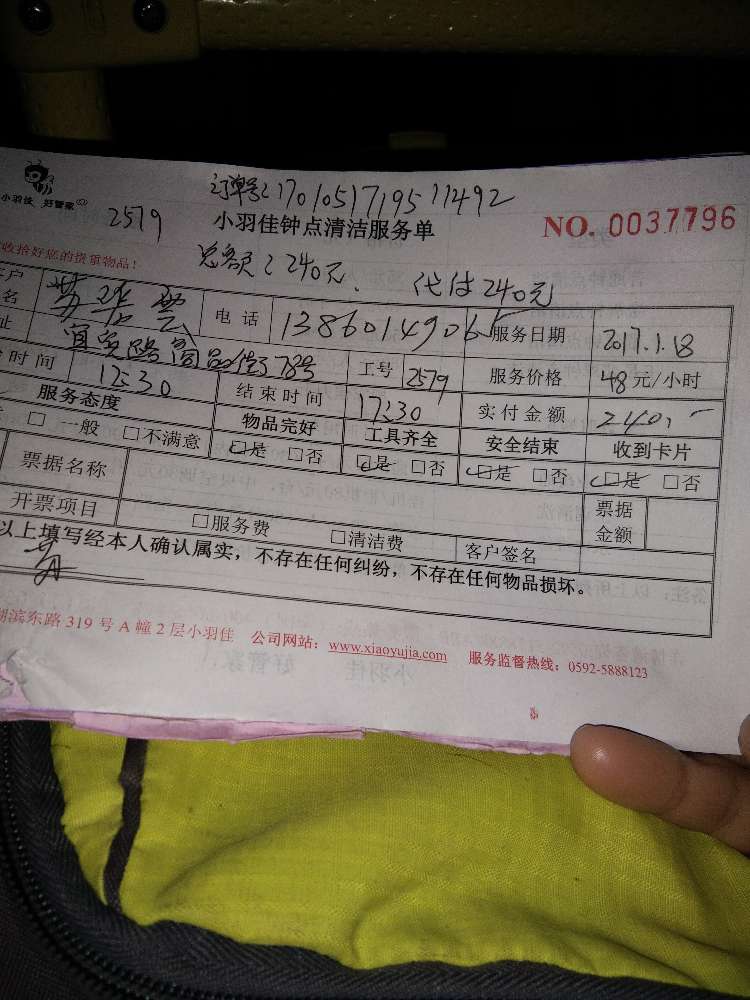 订单号:17010517195711492
小羽佳 好管家
2579
小羽佳钟点清洁服务单
NO. 0037796
收拾好您的贵重物品!
总额:240元. 代付240元
户 名 电话 服务日期 2017.1.18
址 78号 工号 2579 服务价格 48元/小时
时间 12:30 结束时间 17:30 实付金额 240.-
服务态度 物品完好 工具齐全 安全结束 收到卡片
□一般 □不满意 □是 □否 □是 □否 □是 □否 □是 □否
票据名称 票据金额
开票项目 □服务费 □清洁费 客户签名
以上填写经本人确认属实,不存在任何纠纷,不存在任何物品损坏。
湖滨东路 319 号 A 幢 2 层小羽佳 公司网站:www.xiaoyujia.com 服务监督热线:0592-5888123